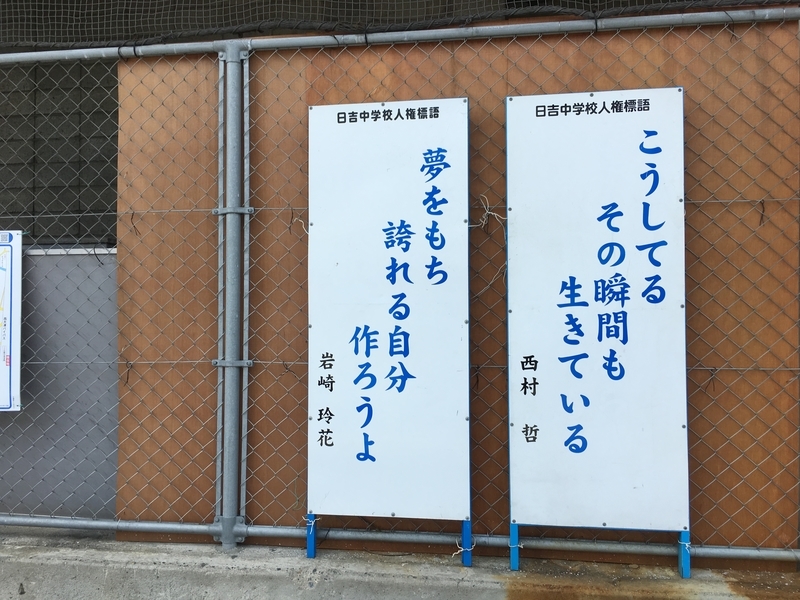 日吉中学校人権標語
こうしてる
その瞬間も
生きている
西村 哲
日吉中学校人権標語
夢をもち
誇れる自分
作ろうよ
岩崎 玲花